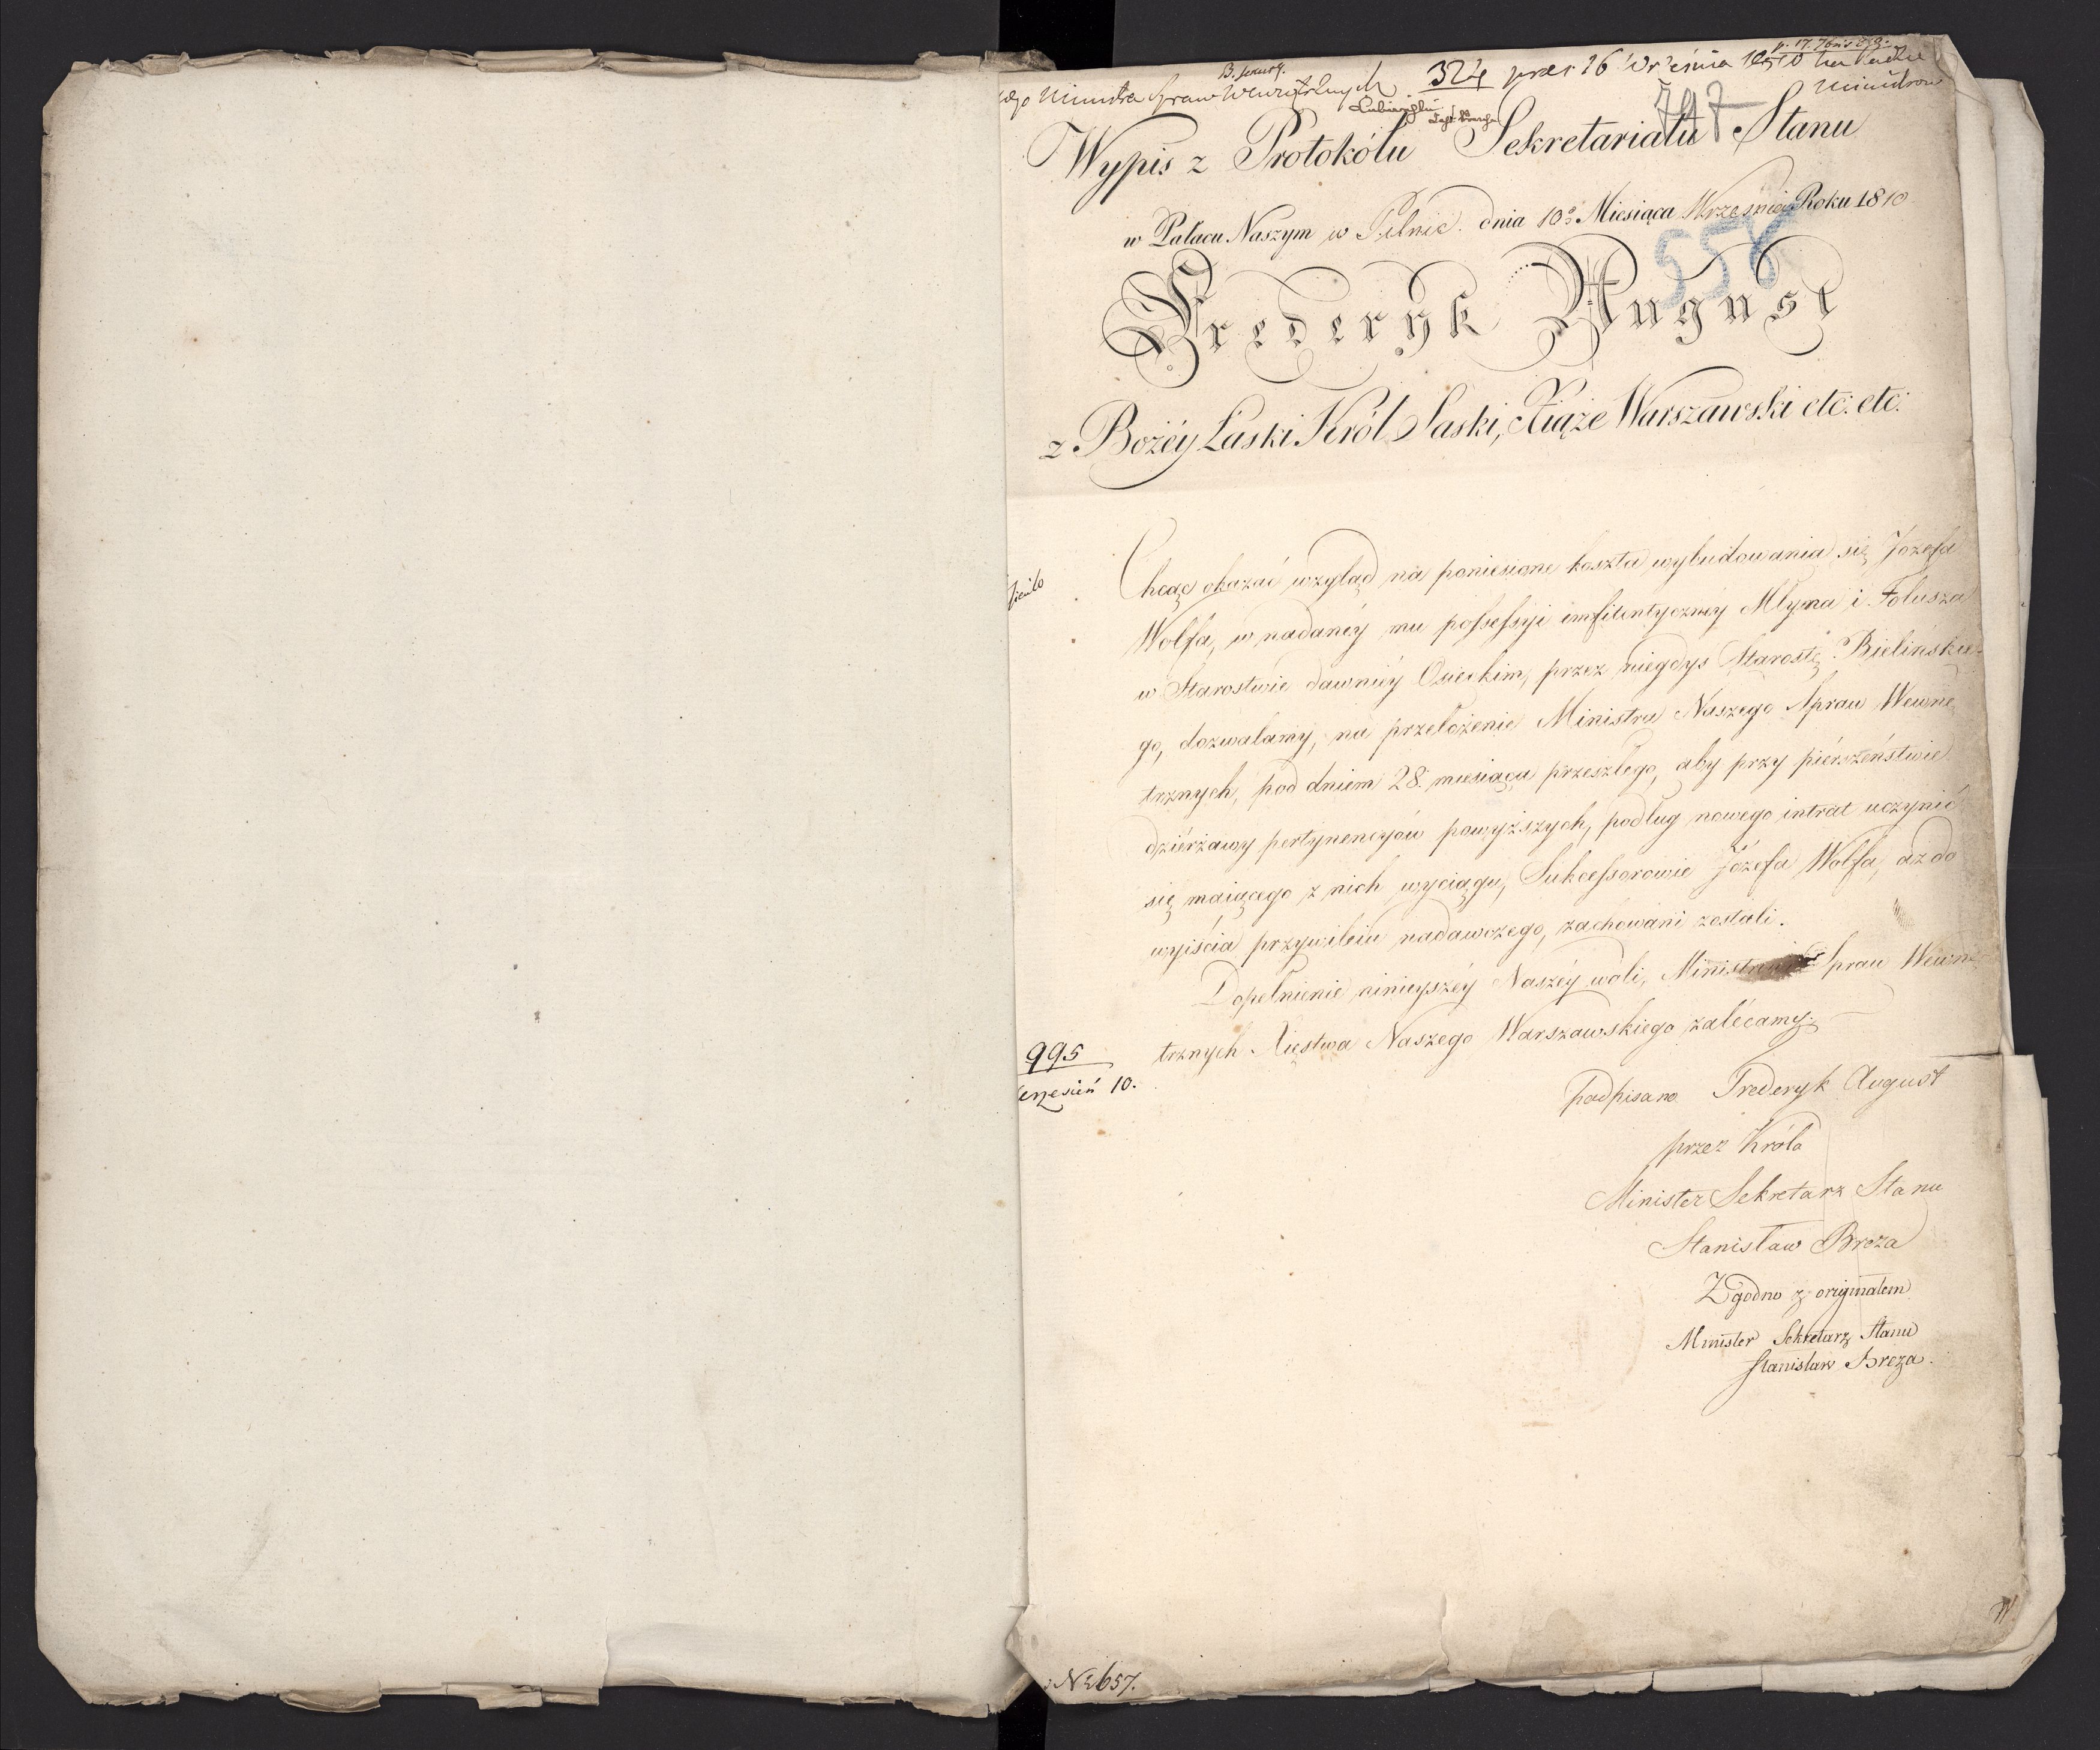 Ministra Spraw Wewnętrznych 324 prez 16 Września 1810 na Radzie
Ministrów
747
Wypis z Protokółu Sekretariatu Stanu
w Pałacu Naszym w Pilnic. dnia 10º Miesiąca Września Roku 1810
558
Frederyk August
z Bożéy Łaski Król Saski, Xiąże Warszawski etc: etc:
Chcąc okazać wzgląd na poniesione koszta wybudowania się Józefa
Wolfa, w nadanéy mu possessyi emfiteutyczney Młyna i Folusza
w Starostwie dawniéy Osieckim, przez niegdyś Starostę Bielińskie-
go, dozwalamy, na przełożenie Ministra Naszego Spraw Wewnę-
trznych, pod dniem 28. miesiąca przeszłego, aby przy pierszeństwie
dzierżawy pertynencyów powyższych, podług nowego intrat uczynić
się maiącego z nich wyciągu, Sukcessorowie Józefa Wolfa, aż do
wyiścia przywileiu nadawczego, zachowani zostali.
Dopełnienie ninieyszéy Naszéy woli, Ministrowi Spraw Wewnę-
trznych Xięstwa Naszego Warszawskiego zalécamy.
995
rzesień 10.
podpisano Frederyk August
przez Króla
Minister Sekretarz Stanu
Stanisław Breza
Zgodno z originałem
Minister Sekretarz Stanu
Stanisław Breza.
No 657.